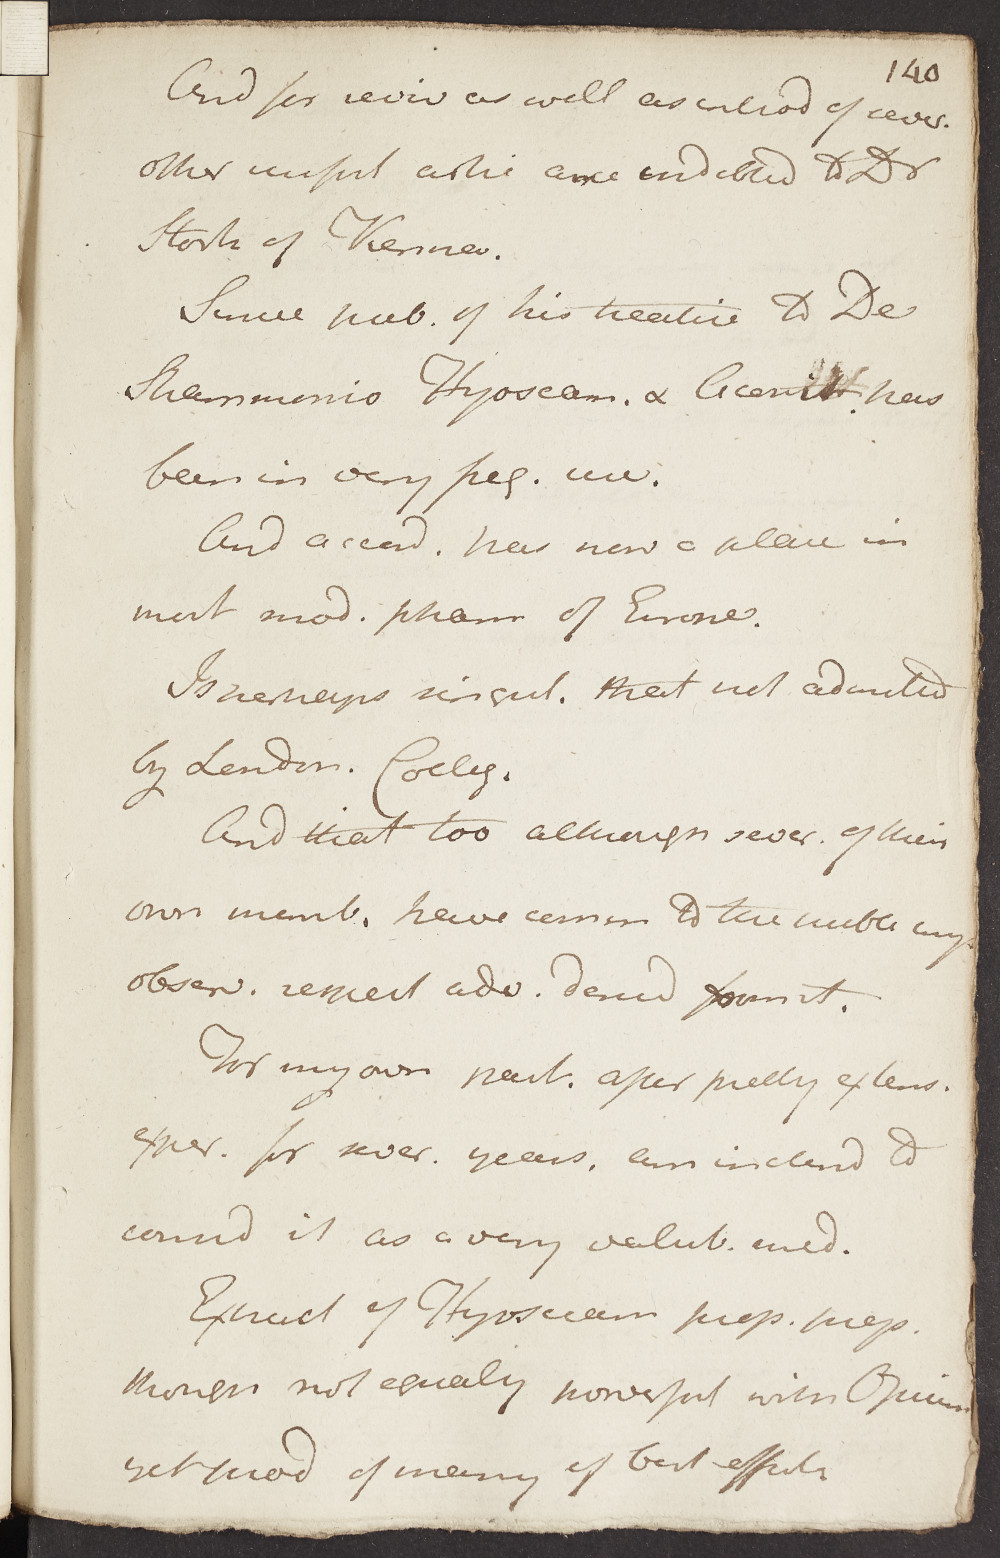 140
And for reviv as well as introd of sever.
other useful artic are indebted to Dr
Stork of Vienna.
Since pub. of his treatise to De
Strammonio Hyosciam. & Aconit. has
been in very freq. use.
And accord. has now a place in
most mod. pharm of Europe.
Is perhaps singul. that not admitted
by London. Colleg.
And that too although sever. of their
own memb. have comm to the public
observ. respect adv. derived from it.
For my own part. after pretty extens.
exper. for sever. years. am inclined to
consid it as a very valub. med.
Extract of Hyosciam prop. prep.
though not equally powerful with Opium
yet prod of many of best effects